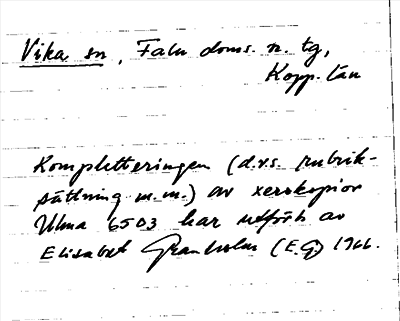 Vika sn, Falu doms. n. tg,
Kopp. län
Kompletteringen (d.v.s. rubrik-
sättning m.m.) av xeroxkopior
Ulma 6503 har utförts av
Elisabet Granholm (E.G) 1966.